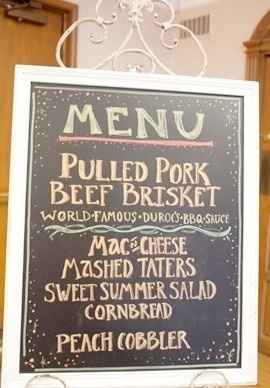 MENU
PULLED PORK
BEEF BRISKET
WORLD·FAMOUS·DUROC'S·BBQ·SAUCE
MAC & CHEESE
MASHED TATERS
SWEET SUMMER SALAD
CORNBREAD
PEACH COBBLER